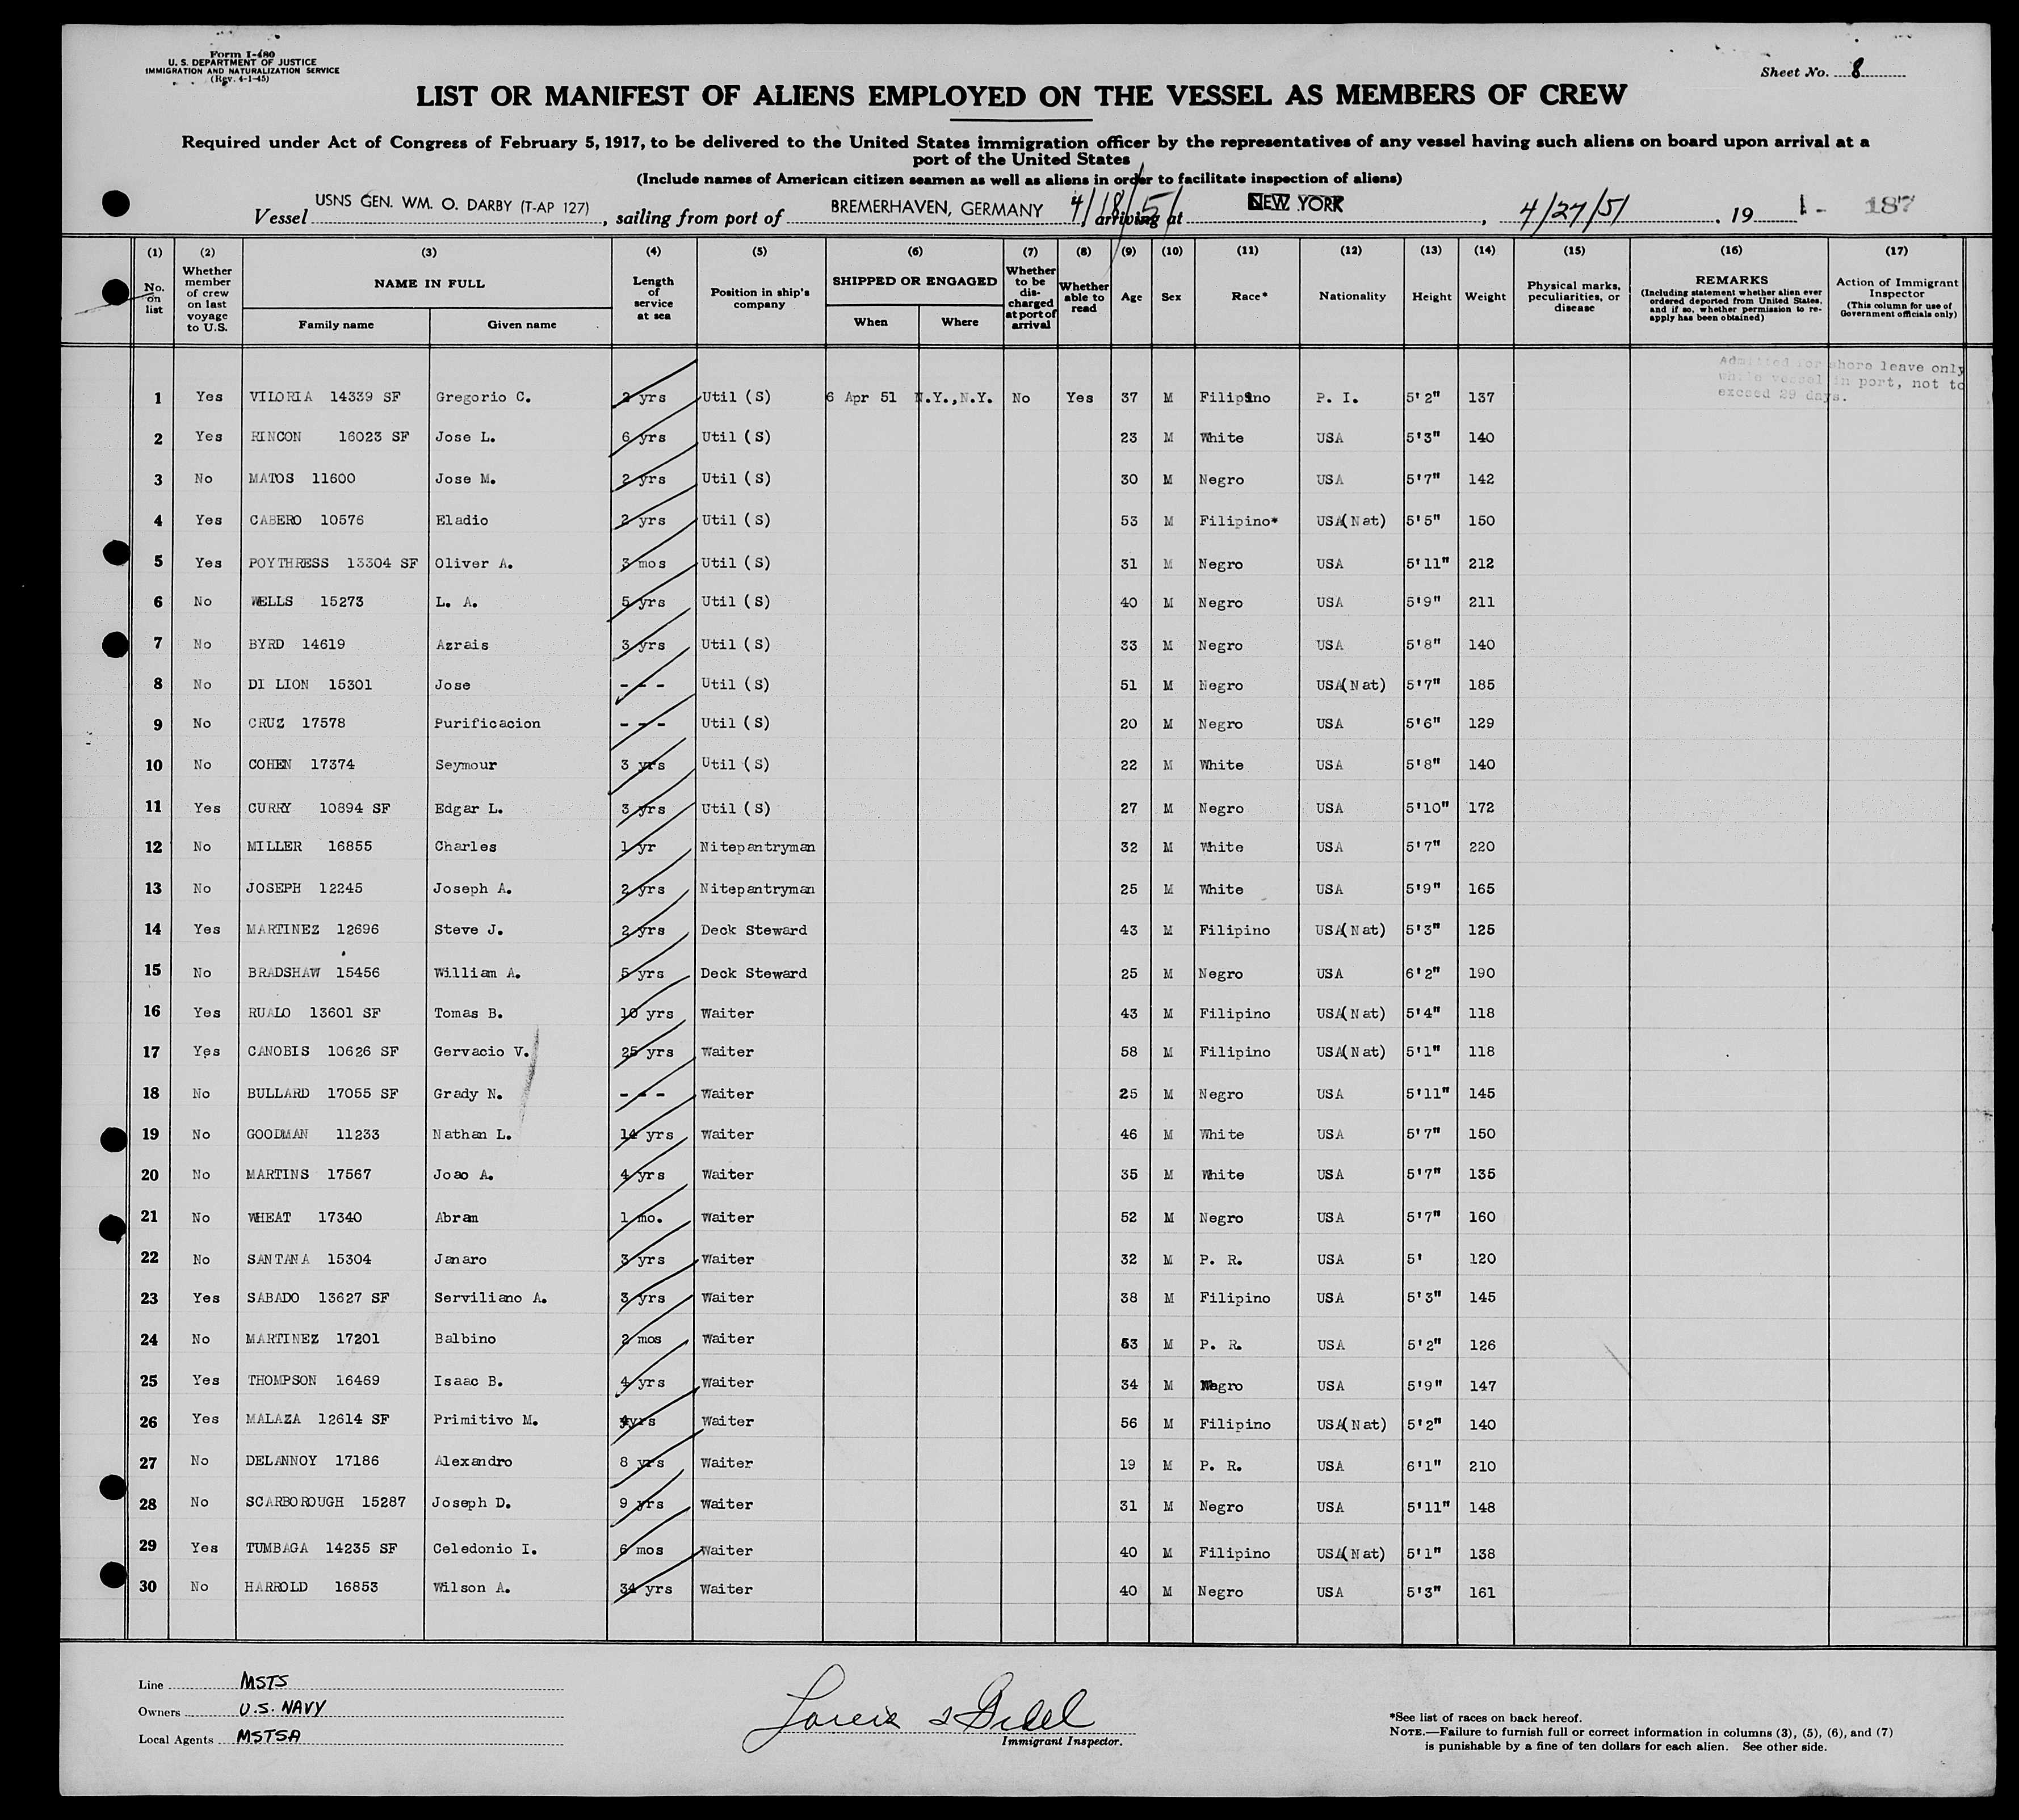 Form I-480
U. S. DEPARTMENT OF JUSTICE
IMMIGRATION AND NATURALIZATION SERVICE
(Rev. 4-1-45)
Sheet No. 8
LIST OR MANIFEST OF ALIENS EMPLOYED ON THE VESSEL AS MEMBERS OF CREW
Required under Act of Congress of February 5, 1917, to be delivered to the United States immigration officer by the representatives of any vessel having such aliens on board upon arrival at a
port of the United States
(Include names of American citizen seamen as well as aliens in order to facilitate inspection of aliens)
Vessel USNS GEN. WM. O. DARBY (T-AP 127), sailing from port of BREMERHAVEN, GERMANY 4/18/51, arriving at NEW YORK, 4/27/51, 19 1- 187
(1) (2) (3) (4) (5) (6) (7) (8) (9) (10) (11) (12) (13) (14) (15) (16) (17)
No. on list
Whether member of crew on last voyage to U.S.
NAME IN FULL
Family name
Given name
Length of service at sea
Position in ship's company
SHIPPED OR ENGAGED
When
Where
Whether to be discharged at port of arrival
Whether able to read
Age
Sex
Race*
Nationality
Height
Weight
Physical marks, peculiarities, or disease
REMARKS
(Including statement whether alien ever ordered deported from United States, and if so, whether permission to re-apply has been obtained)
Action of Immigrant Inspector
(This column for use of Government officials only)
Admitted for shore leave only
while vessel in port, not to
exceed 29 days.
1 Yes VILORIA 14339 SF Gregorio C. yrs Util (S) 6 Apr 51 N.Y.,N.Y. No Yes 37 M Filipino P. I. 5'2" 137
2 Yes RINCON 16023 SF Jose L. 6 yrs Util (S) 23 M White USA 5'3" 140
3 No MATOS 11600 Jose M. 2 yrs Util (S) 30 M Negro USA 5'7" 142
4 Yes CABERO 10576 Eladio 2 yrs Util (S) 53 M Filipino* USA(Nat) 5'5" 150
5 Yes POYTHRESS 13304 SF Oliver A. 3 mos Util (S) 31 M Negro USA 5'11" 212
6 No WELLS 15273 L. A. 5 yrs Util (S) 40 M Negro USA 5'9" 211
7 No BYRD 14619 Azrais 3 yrs Util (S) 33 M Negro USA 5'8" 140
8 No DI LION 15301 Jose - - - Util (S) 51 M Negro USA(Nat) 5'7" 185
9 No CRUZ 17578 Purificacion - - - Util (S) 20 M Negro USA 5'6" 129
10 No COHEN 17374 Seymour 3 yrs Util (S) 22 M White USA 5'8" 140
11 Yes CURRY 10894 SF Edgar L. 3 yrs Util (S) 27 M Negro USA 5'10" 172
12 No MILLER 16855 Charles 1 yr Nitepantryman 32 M White USA 5'7" 220
13 No JOSEPH 12245 Joseph A. 2 yrs Nitepantryman 25 M White USA 5'9" 165
14 Yes MARTINEZ 12696 Steve J. 2 yrs Deck Steward 43 M Filipino USA(Nat) 5'3" 125
15 No BRADSHAW 15456 William A. 5 yrs Deck Steward 25 M Negro USA 6'2" 190
16 Yes RUALO 13601 SF Tomas B. 10 yrs Waiter 43 M Filipino USA(Nat) 5'4" 118
17 Yes CANOBIS 10626 SF Gervacio V. 25 yrs Waiter 58 M Filipino USA(Nat) 5'1" 118
18 No BULLARD 17055 SF Grady N. - - - Waiter 25 M Negro USA 5'11" 145
19 No GOODMAN 11233 Nathan L. 14 yrs Waiter 46 M White USA 5'7" 150
20 No MARTINS 17567 Joao A. 4 yrs Waiter 35 M White USA 5'7" 135
21 No WHEAT 17340 Abram 1 mo. Waiter 52 M Negro USA 5'7" 160
22 No SANTANA 15304 Janaro 3 yrs Waiter 32 M P. R. USA 5' 120
23 Yes SABADO 13627 SF Serviliano A. 3 yrs Waiter 38 M Filipino USA 5'3" 145
24 No MARTINEZ 17201 Balbino 2 mos Waiter 53 M P. R. USA 5'2" 126
25 Yes THOMPSON 16469 Isaac B. 4 yrs Waiter 34 M Negro USA 5'9" 147
26 Yes MALAZA 12614 SF Primitivo M. yrs Waiter 56 M Filipino USA(Nat) 5'2" 140
27 No DELANNOY 17186 Alexandro 8 yrs Waiter 19 M P. R. USA 6'1" 210
28 No SCARBOROUGH 15287 Joseph D. 9 yrs Waiter 31 M Negro USA 5'11" 148
29 Yes TUMBAGA 14235 SF Celedonio I. 6 mos Waiter 40 M Filipino USA(Nat) 5'1" 138
30 No HARROLD 16853 Wilson A. 34 yrs Waiter 40 M Negro USA 5'3" 161
Line MSTS
Owners U.S. NAVY
Local Agents MSTSA
Immigrant Inspector.
*See list of races on back hereof.
NOTE.—Failure to furnish full or correct information in columns (3), (5), (6), and (7)
is punishable by a fine of ten dollars for each alien. See other side.